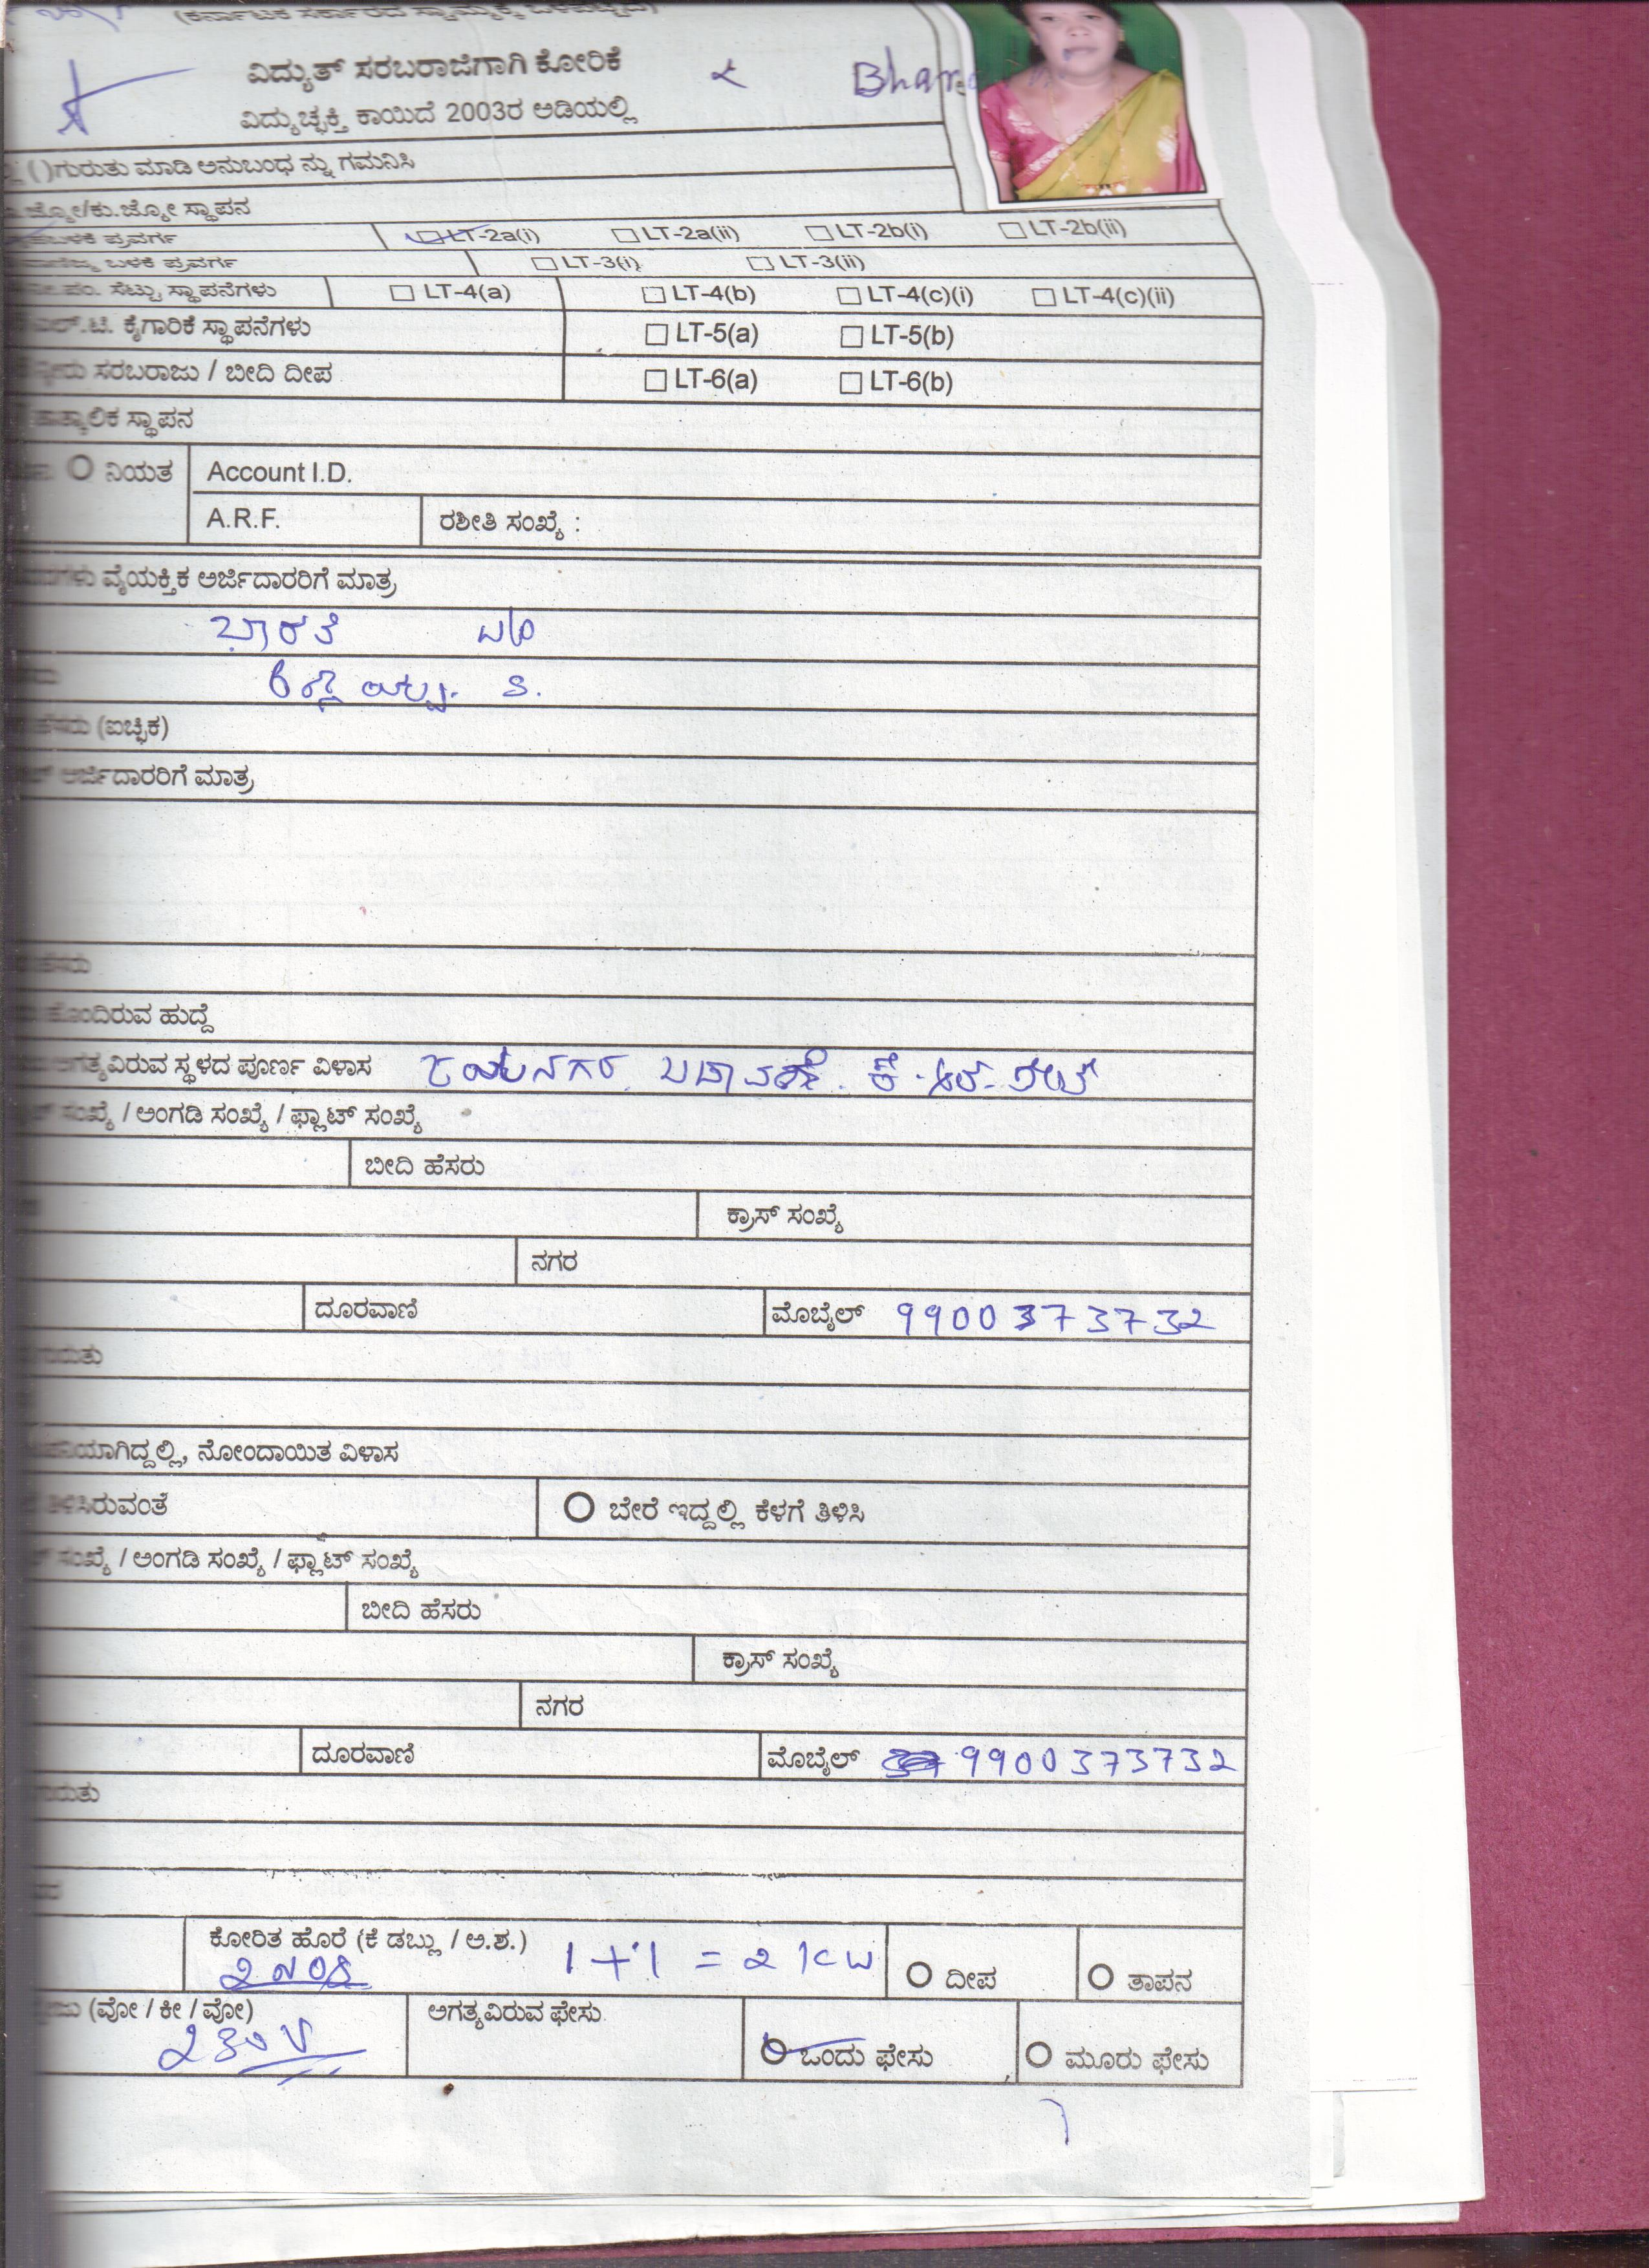 (ಕರ್ನಾಟಕ ಸರ್ಕಾರದ ಸ್ವಾಮ್ಯಕ್ಕೆ ಒಳಪಟ್ಟಿದೆ)
ವಿದ್ಯುತ್ ಸರಬರಾಜಿಗಾಗಿ ಕೋರಿಕೆ
ವಿದ್ಯುಚ್ಛಕ್ತಿ ಕಾಯಿದೆ 2003ರ ಅಡಿಯಲ್ಲಿ
( )ಗುರುತು ಮಾಡಿ ಅನುಬಂಧ ನ್ನು ಗಮನಿಸಿ
ಜ್ಯೋ/ಕು.ಜ್ಯೋ ಸ್ಥಾಪನ
ಬಳಕೆ ಪ್ರವರ್ಗ LT-2a(i) LT-2a(ii) LT-2b(i) LT-2b(ii)
ಬಳಕೆ ಪ್ರವರ್ಗ LT-3(i) LT-3(ii)
ಪಂ. ಸೆಟ್ಟು ಸ್ಥಾಪನೆಗಳು LT-4(a) LT-4(b) LT-4(c)(i) LT-4(c)(ii)
ಎಲ್.ಟಿ. ಕೈಗಾರಿಕೆ ಸ್ಥಾಪನೆಗಳು LT-5(a) LT-5(b)
ಸರಬರಾಜು / ಬೀದಿ ದೀಪ LT-6(a) LT-6(b)
ತಾತ್ಕಾಲಿಕ ಸ್ಥಾಪನ
ನಿಯತ Account I.D.
A.R.F. ರಶೀತಿ ಸಂಖ್ಯೆ :
ವೈಯಕ್ತಿಕ ಅರ್ಜಿದಾರರಿಗೆ ಮಾತ್ರ
ಭಾರತಿ
ಹೆಸರು (ಐಚ್ಛಿಕ)
ಅರ್ಜಿದಾರರಿಗೆ ಮಾತ್ರ
ಹೆಸರು
ಹೊಂದಿರುವ ಹುದ್ದೆ
ಅಗತ್ಯವಿರುವ ಸ್ಥಳದ ಪೂರ್ಣ ವಿಳಾಸ ಜಯನಗರ ಬಡಾವಣೆ. ಕೆ.ಆರ್.ಪೇಟೆ
ಸಂಖ್ಯೆ / ಅಂಗಡಿ ಸಂಖ್ಯೆ / ಫ್ಲಾಟ್ ಸಂಖ್ಯೆ
ಬೀದಿ ಹೆಸರು
ಕ್ರಾಸ್ ಸಂಖ್ಯೆ
ನಗರ
ದೂರವಾಣಿ ಮೊಬೈಲ್ 9900373732
ಗುರುತು
ನಿಯಾಗಿದ್ದಲ್ಲಿ, ನೋಂದಾಯಿತ ವಿಳಾಸ
ತಿಳಿಸಿರುವಂತೆ ಬೇರೆ ಇದ್ದಲ್ಲಿ ಕೆಳಗೆ ತಿಳಿಸಿ
ಸಂಖ್ಯೆ / ಅಂಗಡಿ ಸಂಖ್ಯೆ / ಫ್ಲಾಟ್ ಸಂಖ್ಯೆ
ಬೀದಿ ಹೆಸರು
ಕ್ರಾಸ್ ಸಂಖ್ಯೆ
ನಗರ
ದೂರವಾಣಿ ಮೊಬೈಲ್ 9900373732
ಗುರುತು
ಕೋರಿತ ಹೊರೆ (ಕೆ ಡಬ್ಲು / ಅ.ಶ.) 1+1 = 2 KW ದೀಪ ತಾಪನ
(ವೋ / ಕೀ / ವೋ) ಅಗತ್ಯವಿರುವ ಫೇಸು ಒಂದು ಫೇಸು ಮೂರು ಫೇಸು
230 V